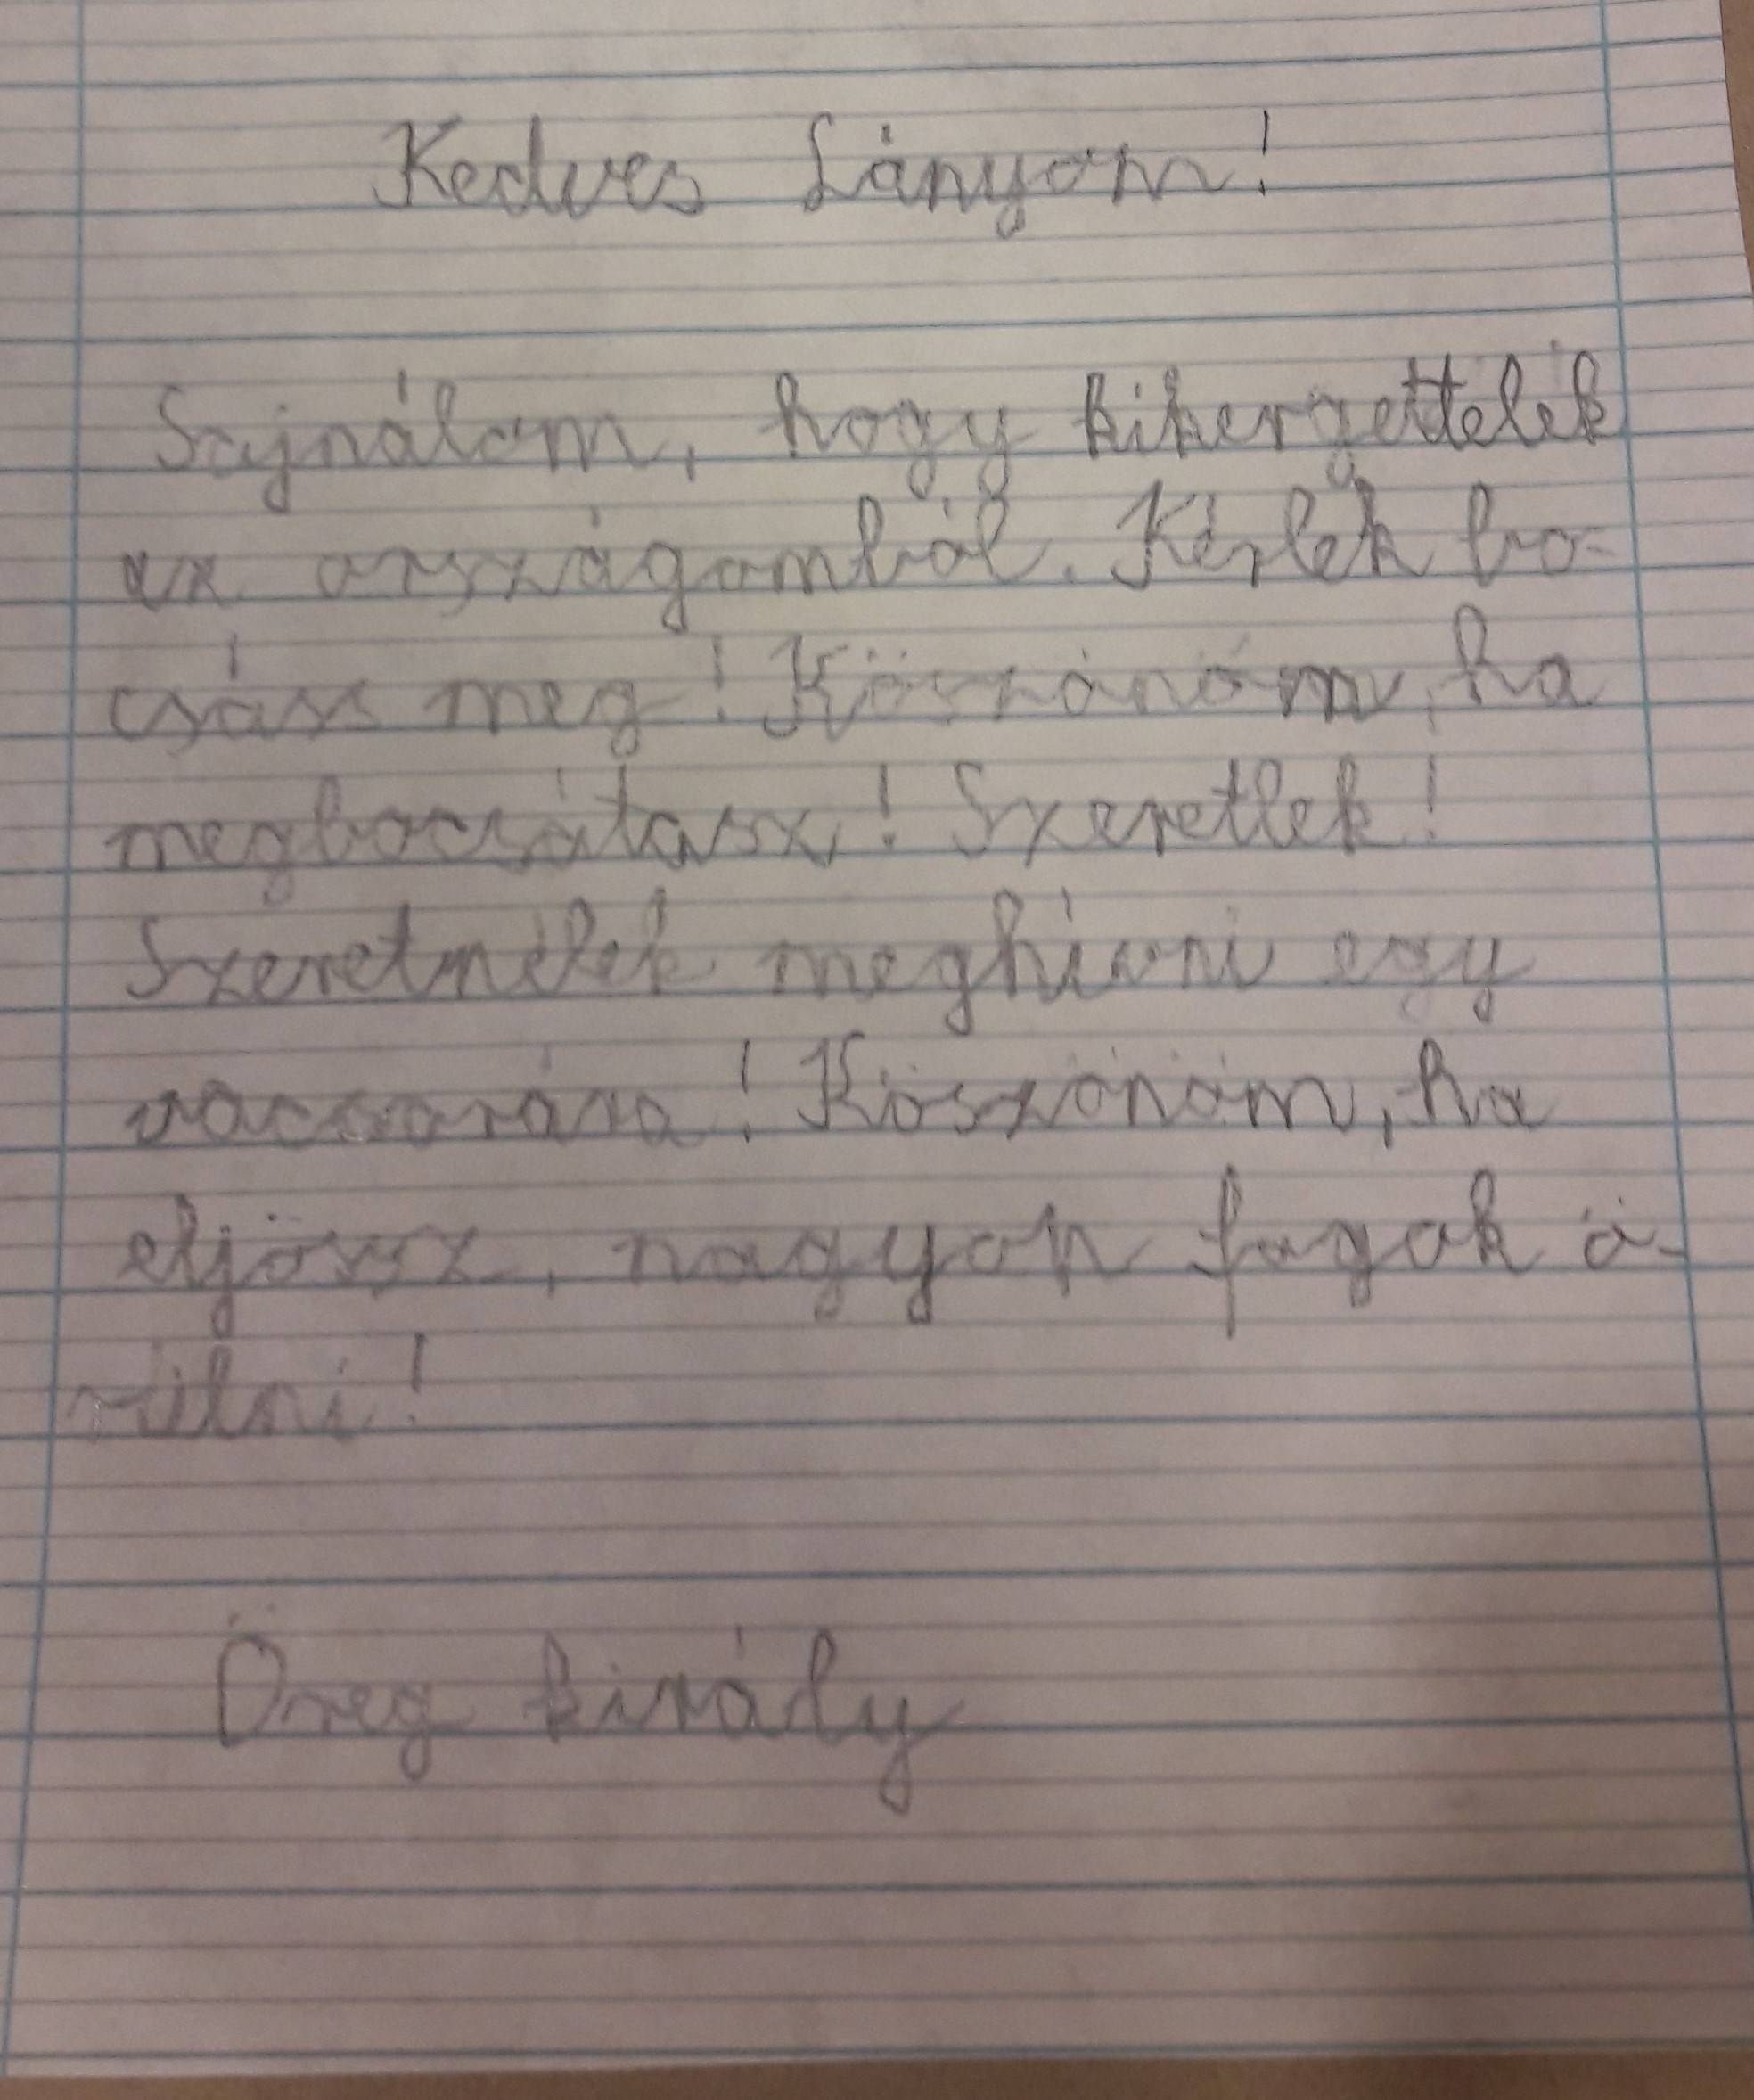 Kedves Lányom!
Sajnálom, hogy kikergettelek
az országomból. Kérlek bo-
csáss meg! Köszönöm, ha
megbocsátasz! Szeretlek!
Szeretnélek meghívni egy
vacsorára! Köszönöm, ha
eljössz, nagyon fogok ö-
rülni!
Öreg király